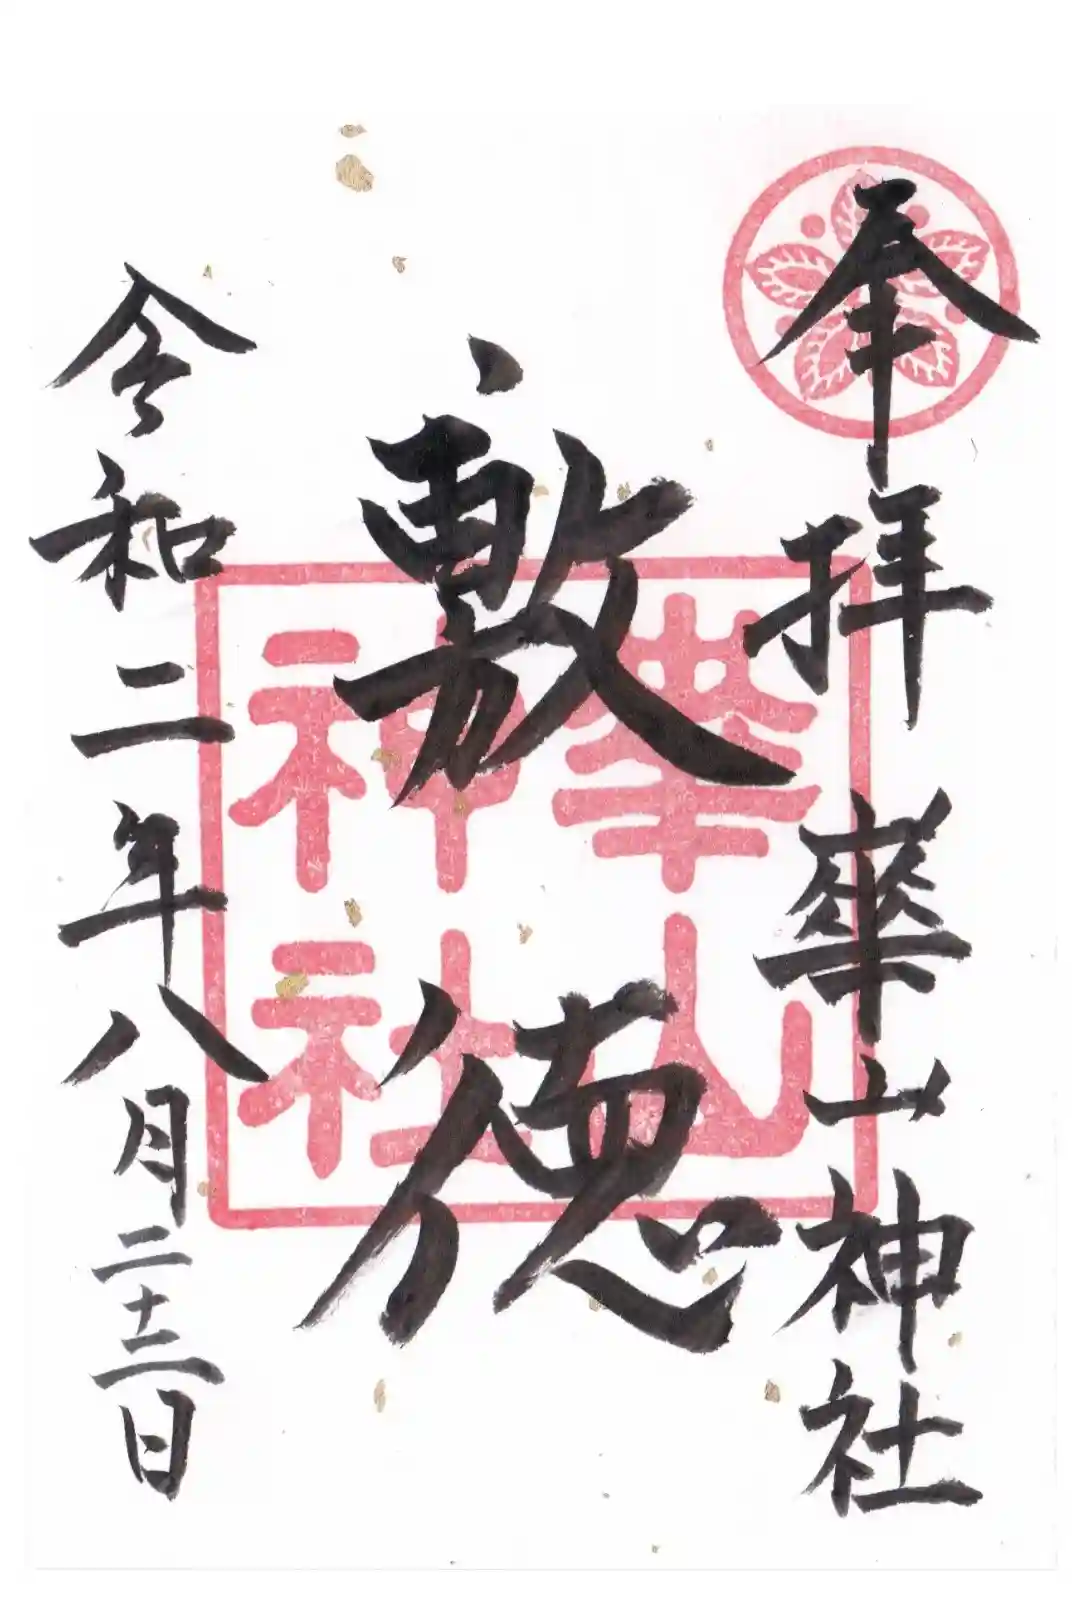 奉拝 華山神社
敷徳
令和二年八月二十三日
華山
神社